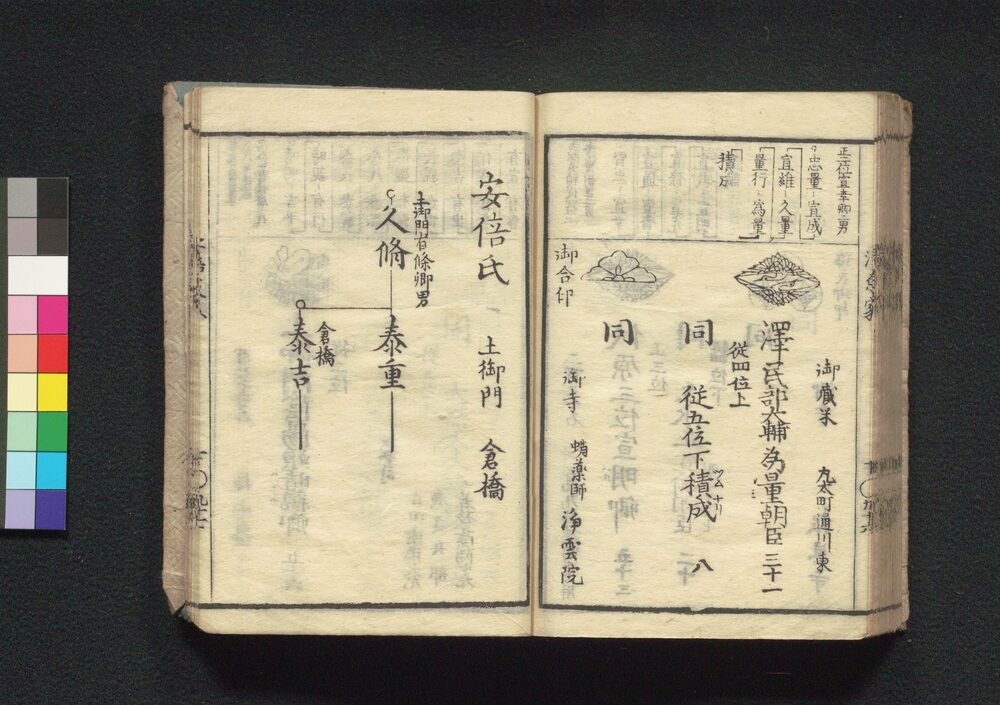 正三位宣幸卿男
忠量 宣成
宣維 久量
量行 為量
積成
御蔵米 丸太町通川東
澤民部大輔為量朝臣 三十一
従四位上
同 従五位下積成 八
ツムナリ
同
御合印
御寺 蛸薬師 浄雲院
安倍氏 土御門 倉橋
土御門有脩卿男
久脩 泰重
倉橋
泰吉